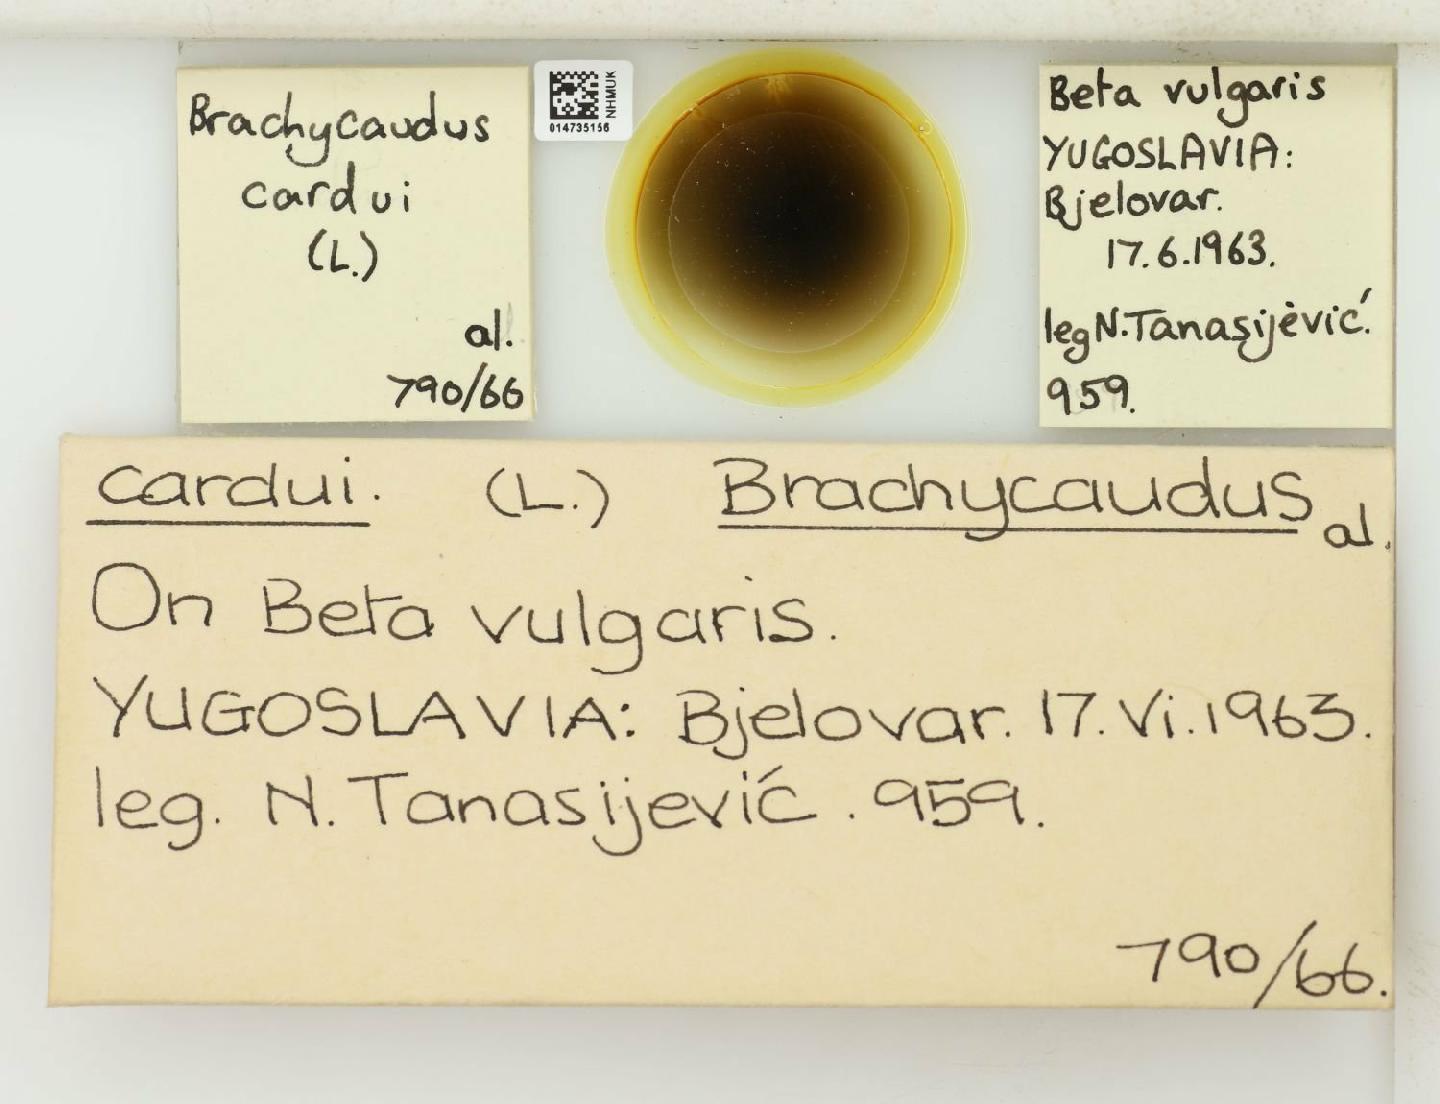 Brachycaudus
cardui
(L.)
al.
790/66
NHMUK
014735156
Beta vulgaris
YUGOSLAVIA:
Bjelovar.
17.6.1963.
leg N. Tanasijević.
959.
cardui. (L.) Brachycaudus al.
On Beta vulgaris.
YUGOSLAVIA: Bjelovar. 17.Vi.1963.
leg. N. Tanasijević. 959.
790/66.